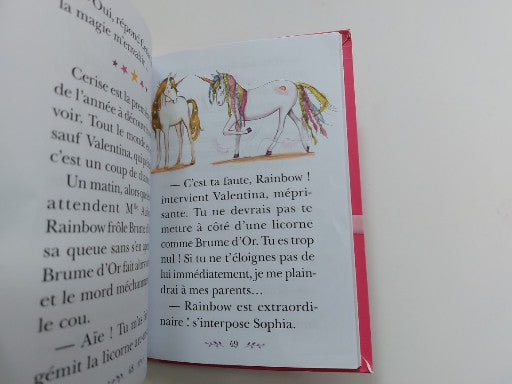 — Oui, répond
la magie m'envahir
Cerise est la
de l'année à
voir. Tout le monde
sauf Valentina, qui
c'est un coup de
Un matin, alors
attendent M^lle
Rainbow frôle Brume
sa queue sans s'en
Brume d'Or fait
et le mord
le cou.
— Aïe ! Tu m'as
gémit la licorne
48
— C'est ta faute, Rainbow !
intervient Valentina, mépri-
sante. Tu ne devrais pas te
mettre à côté d'une licorne
comme Brume d'Or. Tu es trop
nul ! Si tu ne t'éloignes pas de
lui immédiatement, je me plain-
drai à mes parents…
— Rainbow est extraordi-
naire ! s'interpose Sophia.
49